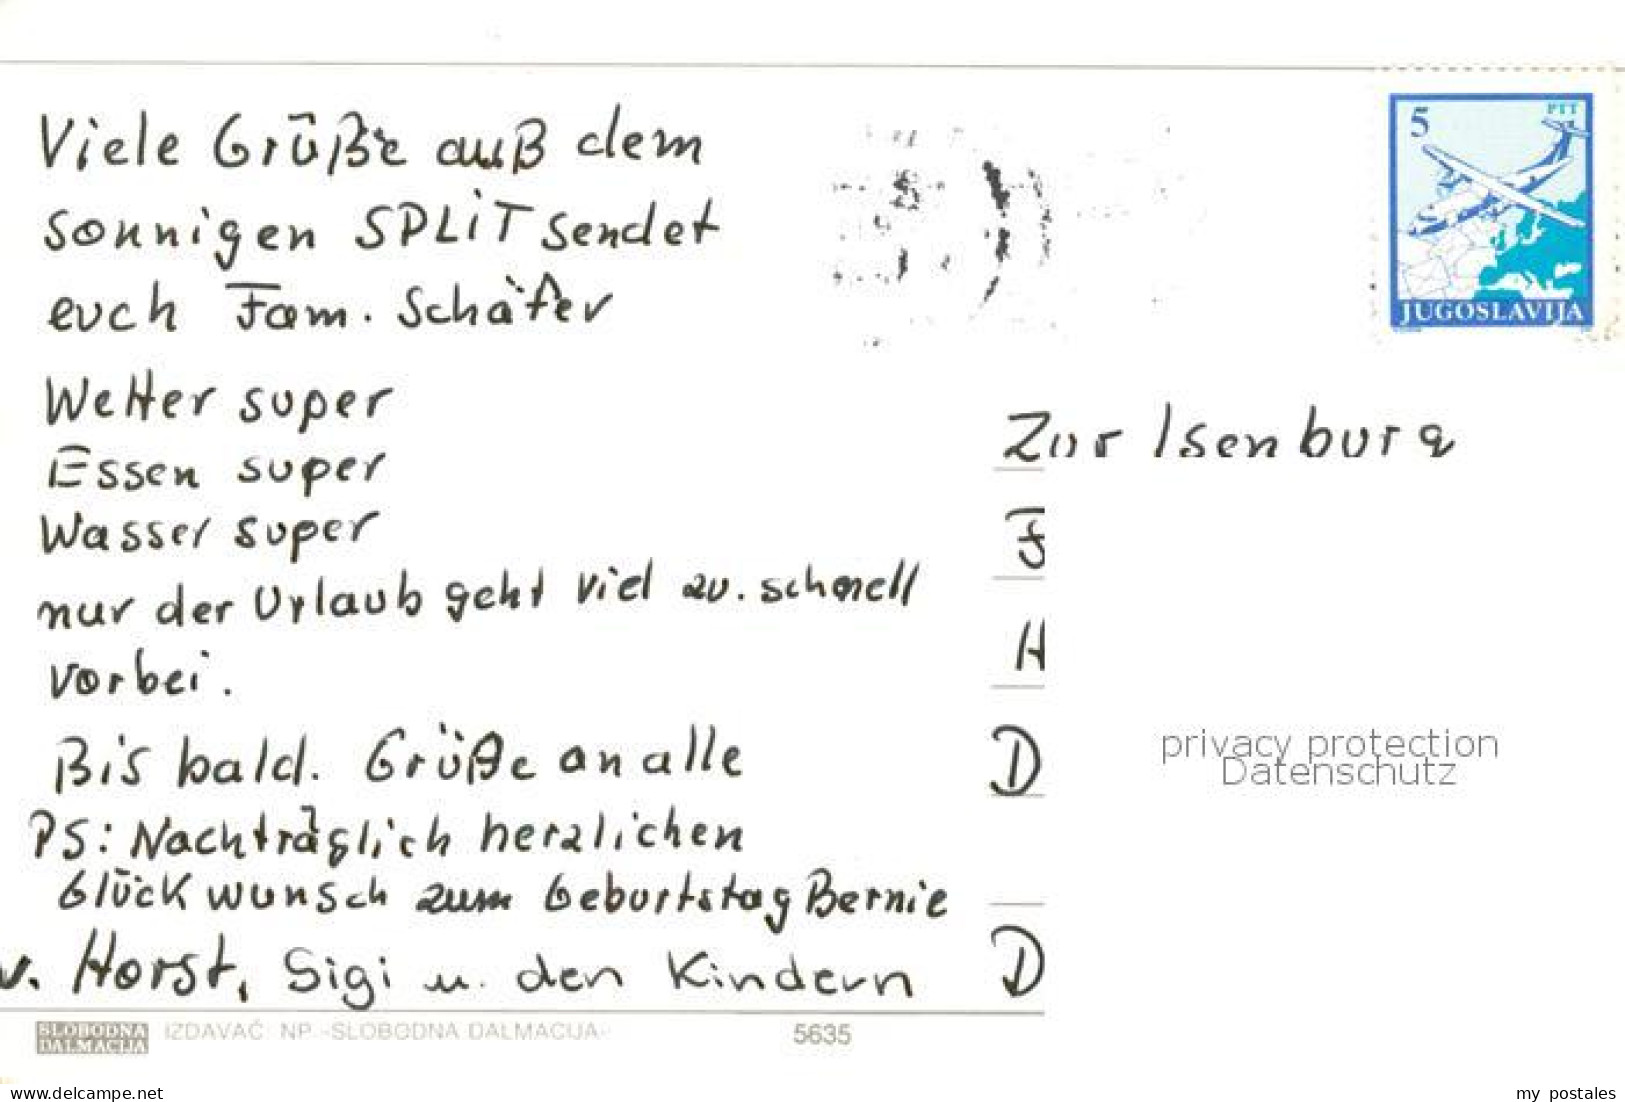 5 PTT
JUGOSLAVIJA
Viele Grüße auß dem
sonnigen SPLiT sendet
euch Fam. Schäfer
Wetter super
Essen super
Wasser super
nur der Urlaub geht viel zu. schnell
vorbei.
Bis bald. Grüße an alle
PS: Nachträglich herzlichen
Glückwunsch zum Geburtstag Bernie
v. Horst, Sigi u. den Kindern
Zur Isenburg
F
H
D
D
privacy protection
Datenschutz
SLOBODNA
DALMACIJA
IZDAVAČ: NP «SLOBODNA DALMACIJA»
5635
www.delcampe.net
my_postales